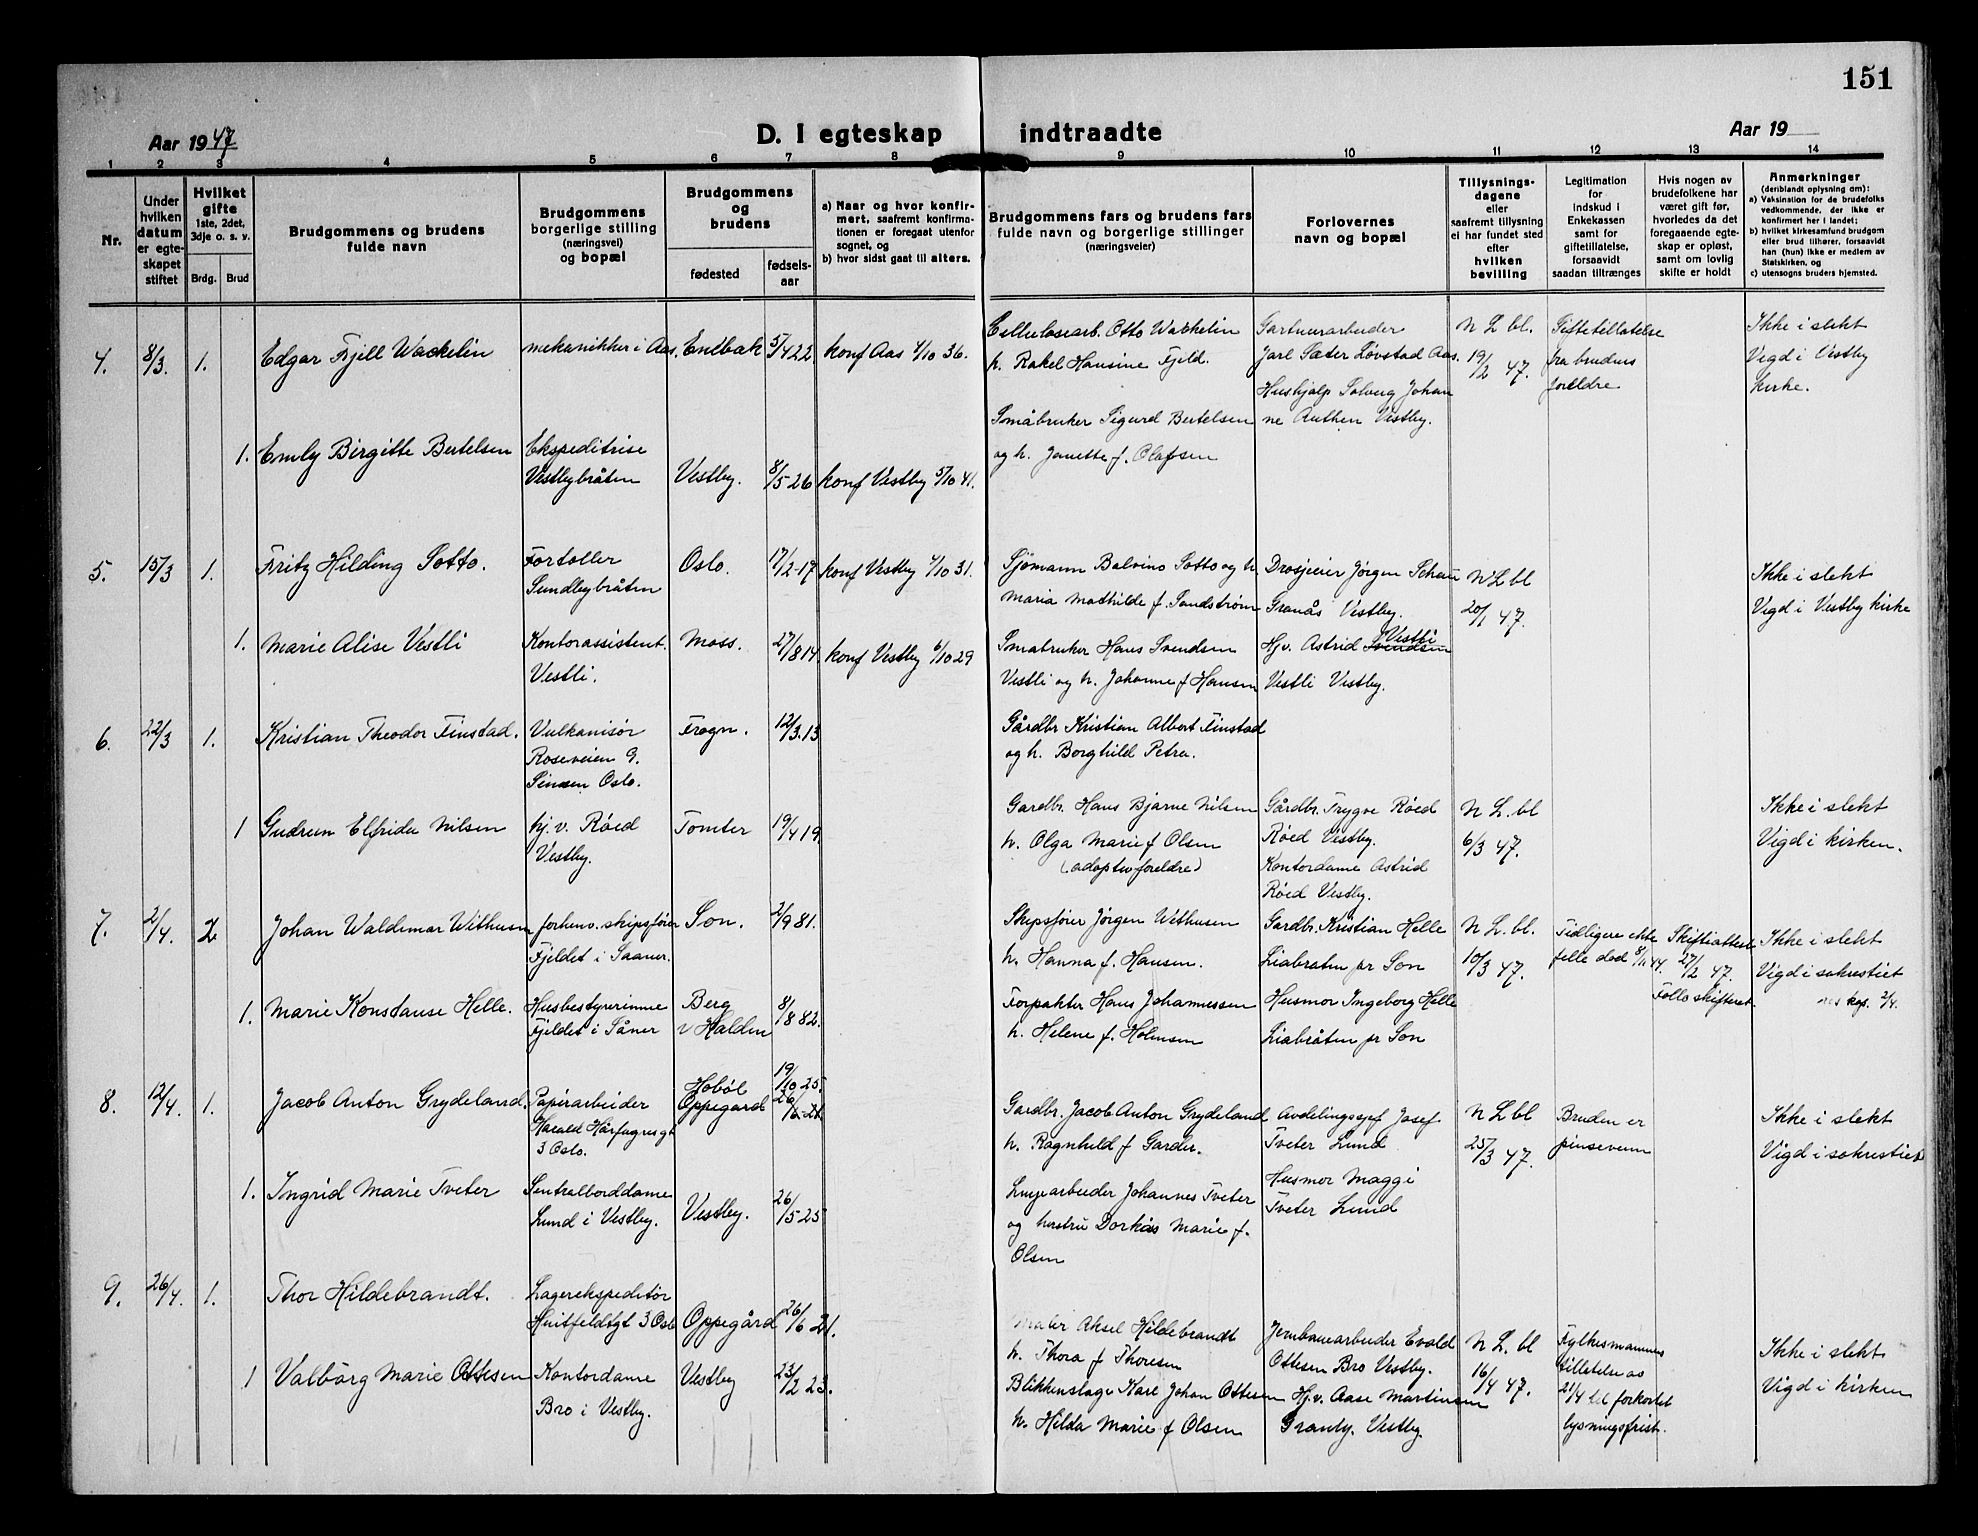 151
Aar 1947
D. I egteskap indtraadte
Aar 19
1 2 3 4 5 6 7 8 9 10 11 12 13 14
Nr.
Under
hvilken
datum
er egte-
skapet
stiftet
Hvilket
gifte
1ste, 2det,
3dje o. s. v.
Brdg. Brud
Brudgommens og brudens
fulde navn
Brudgommens
borgerlige stilling
(næringsvei)
og bopæl
Brudgommens
og
brudens
fødested
fødsels-
aar
a) Naar og hvor konfir-
mert, saafremt konfirma-
tionen er foregaat utenfor
sognet, og
b) hvor sidst gaat til alters.
Brudgommens fars og brudens fars
fulde navn og borgerlige stillinger
(næringsveier)
Forlovernes
navn og bopæl
Tillysnings-
dagene
eller
saafremt tillysning
ei har fundet sted
efter
hvilken
bevilling
Legitimation
for
indskud i
Enkekassen
samt for
giftetillatelse,
forsaavidt
saadan tiltrænges
Hvis nogen av
brudefolkene har
været gift før,
hvorledes da det
foregaaende egte-
skap er opløst,
samt om lovlig
skifte er holdt
Anmerkninger
(deriblandt oplysning om):
a) Vaksination for de brudefolks
vedkommende, der ikke er
konfirmert her i landet;
b) hvilket kirkesamfund brudgom
eller brud tilhører, forsaavidt
han (hun) ikke er medlem av
Statskirken, og
c) utensogns bruders hjemsted.
4. 8/3. 1. Edgar Fjell Wackelin
mekanikker i Aas.
Enebak 5/4 22
konf Aas 4/10 36.
Cellulosearb. Otto Wackelin
h. Rakel Hansine Fjeld.
Gartnerarbeider
Jarl Sæter Løvstad Aas.
Hushjalp Solveig Johan
ne Authen Vestby.
N L bl.
19/2 47.
Giftetillatelse
fra brudens
foreldre
Ikke i slekt
Vegd i Vestby
kirke.
1. Emly Birgitte Bertelsen
Ekspeditrise
Vestbybråten
Vestby. 8/5 26
konf Vestby 5/10 41.
Småbruker Sigurd Bertelsen
og h. Janette f. Olafsen
5. 15/3 1. Fritz Hilding Sotto.
Fortoller
Sundbybråten
Oslo. 17/2-17
konf Vestby 4/10 31.
Sjømann Balvino Sotto og h.
Maria Mathilde f. Sandstrøm
Drosjeeier Jørgen Schau
Granås Vestby.
N L bl
20/1 47.
Ikke i slekt
Vegd i Vestby kirke
1. Marie Alise Vestli
Kontorassistent.
Vestli.
Moss. 27/8 14.
konf Vestby 6/10 29
Smabruker Hans Svendsen
Vestli og h. Johanne f Hansen
Hj.v. Astrid Svendsen Vestli
Vestli Vestby.
6. 22/3 1. Kristian Theodor Finstad.
Vulkanisør
Roseveien 9.
Sinsen Oslo.
Frogn. 12/3.13
Gårdbr Kristian Albert Finstad
og h. Borghild Petra.
1 Gudrun Elfrida Nilsen
hj. v. Røed
Vestby.
Tomter 19/4 19.
Gardbr. Hans Bjarne Nilsen
h. Olga Marie f Olsen
(adoptivforeldre)
Gårdbr. Trygve Røed
Røed Vestby.
Kontordame Astrid
Røed Vestby.
N L. bl
6/3 47.
Ikke i slekt
Vigd i kirken.
7. 2/4. 2 Johan Waldemar Withusen
forhenv. skipsfører
Fjeldet i Saaner.
Son. 2/9 81.
Skipsfører Jørgen Wethusen
h. Hanna f. Hansen.
Gardbr. Kristian Helle
Liabråten pr Son
N L. bl.
10/3 47.
Tidligere ekte
felle død 8/11 44.
Skifteattest
27/2 47.
Follo skifteret.
Ikke i slekt
Vigd i sakrestiet
res kap. 2/4.
1. Marie Konstanse Helle.
Husbestyrerinne
Fjeldet i Såner
Berg
v Halden
8/8 82.
Forpakter Hans Johannessen
h. Helene f. Holmsen
Husmor Ingeborg Helle
Liabråten pr Son
8. 12/4. 1. Jacob Anton Grydeland.
Papirarbeider
Harald Hårfagres gt
3 Oslo.
Hobøl
Oppegard
19/10 25.
Gardbr. Jacob Anton Grydeland
h. Ragnhild f Garder.
Avdelingssjef Josef
Tveter Lund
N L bl
25/3 47.
Bruden er
pinsevenn
Ikke i slekt
Vigd i sakrestiet
1. Ingrid Marie Tveter
Sentralborddame
Lund i Vestby.
Vestby. 26/5-25
Linjearbeider Johannes Tveter
og hustru Dorkas Marie f.
Olsen
Husmor Maggi
Tveter Lund
9. 26/4. 1. Thor Hildebrandt.
Lagerekspeditør
Huitfeldtgt 3 Oslo
Oppegård 26/6 21.
Maler Aksel Hildebrandt
h. Thora f Thoresen
Jernbanearbeider Evald
Ottesen Bro Vestby.
N L. bl
16/4 47.
Fylkesmannens
tilletelse av
21/4 til forkortet
lysningsfrist.
Ikke i slekt
Vigd i kirken
1 Valborg Marie Ottesen
Kontordame
Bro i Vestby.
Vestby 23/2 23.
Blikkenslager Karl Johan Ottesen
h. Hilda Marie f Olsen
Hj.v. Aase Martinsen
Granly. Vestby.